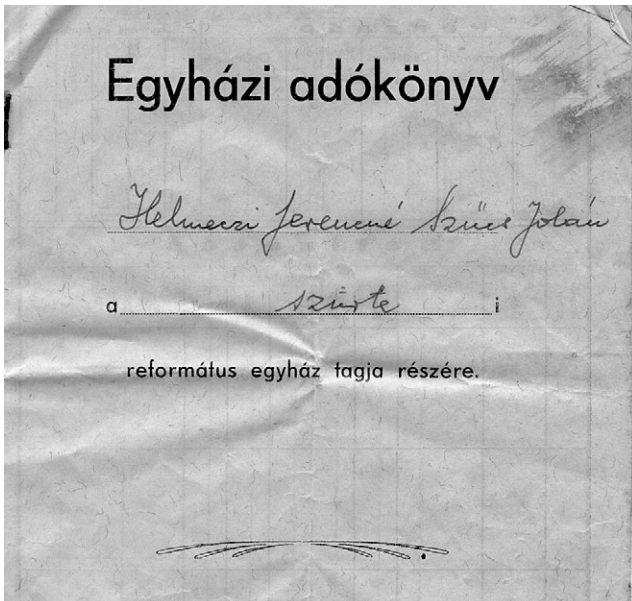 Egyházi adókönyv
Helmeczi Ferencné Szücs Jolán
a szürte i
református egyház tagja részére.